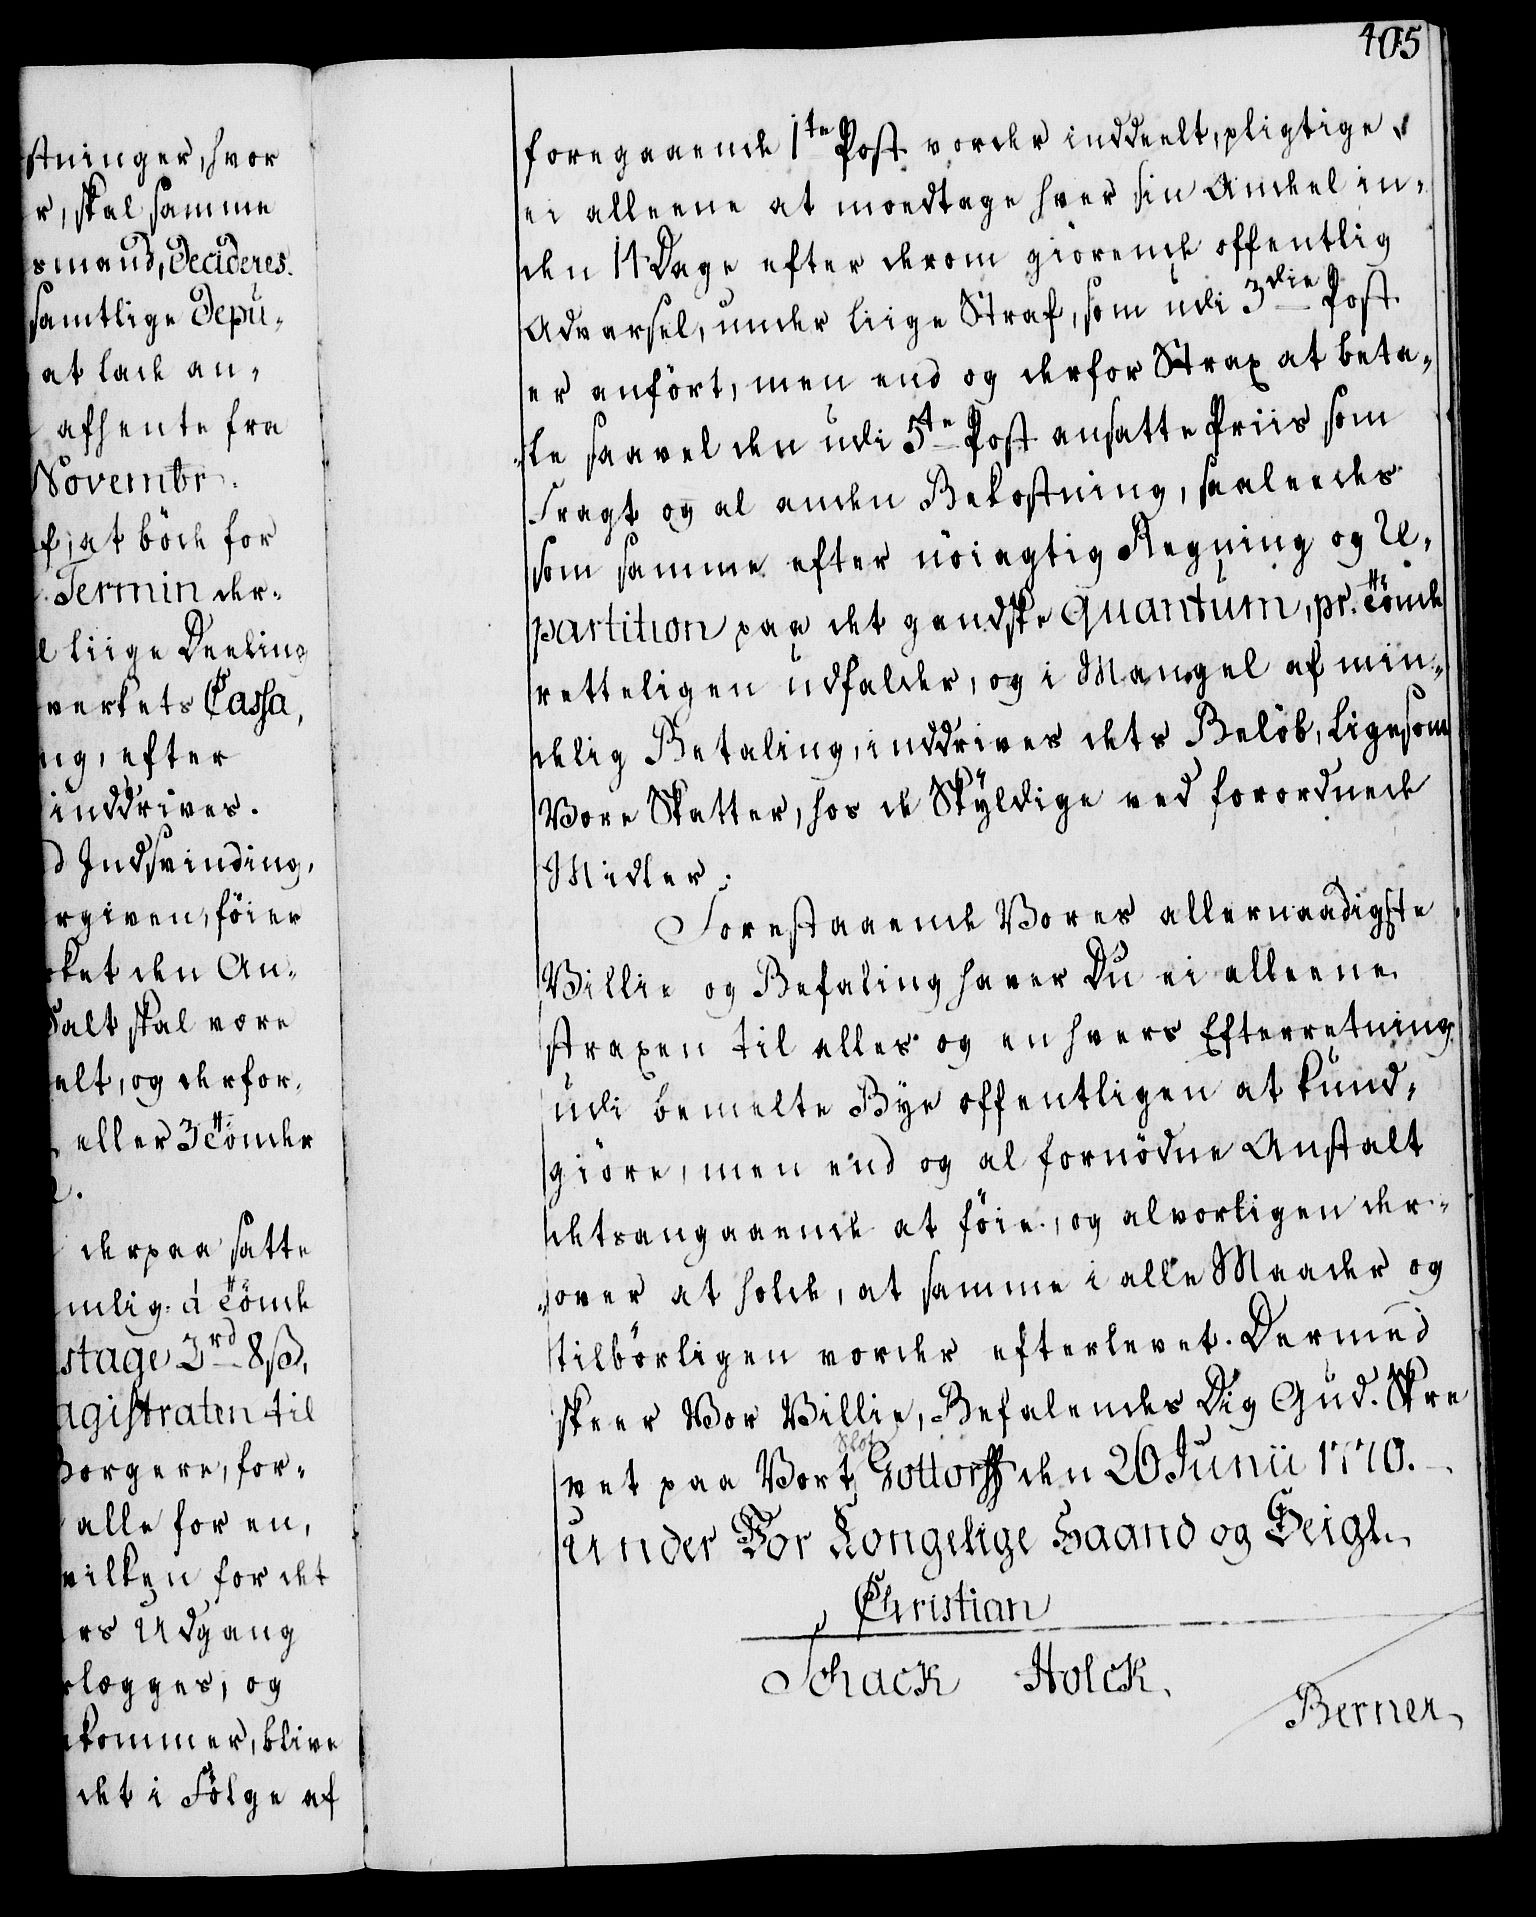 405
stninger, hvor
r, skal samme
smand, Decideres.
samtlige Depu-
at lade an-
afhente fra
Novembr.
f, at böde for
Termin der-
l liige Deeling
verkets Cassa,
ng, efter
inddrives.
d Indsvinding,
rgiven, föier
ket den An-
Salt skal være
elt, og derfor,
eller 3 Tönder
derpaa satte
mlig. á Tönde
stage 3rd 8ß,
agistraten til
Borgere, for-
alle for en,
vilken for det
rs Udgang
lægges, og
kommer, blive
det i Fölge af
foregaaende 1te Post vorder inddeelt, pligtige
ei alleene at modtage hver sin Andeel in-
den 14 Dage efter derom giörende offentlig
Advarsel, under liige Straf, som udi 3die Post
er anfört, men end og derfor Strax at beta-
le saavel den udi 5te Post ansatte Priis som
Fragt og al anden Bekostning, saaleedes
som samme efter nöiagtig Regning og Re-
partition paa det gandske Quantum, pr. Tönde
retteligen udfalder, og i Mangel af min-
delig Betaling, inddrives dets Belöb, ligesom
Vore Skatter, hos de Skyldige ved forordnede
Midler.
Forestaaende Vores allernaadigste
Villie og Befaling haver Du ei alleene
straxen til alles og en hvers Efterretning
udi bemelte Bye offentligen at kund-
giöre, men end og al fornödne Anstalt
detsangaaende at föie, og alvorligen der-
over at holde, at samme i alle Maader og
tilbörligen vorder efterlevet. Dermed
skeer Vor Villie, Befalendes Dig Gud. Skre
vet paa Vort Slot Gottorff den 26 Junii 1770.
Under Vor Kongelige Haand og Seigl.
Christian
Schack Holck.
Berner,